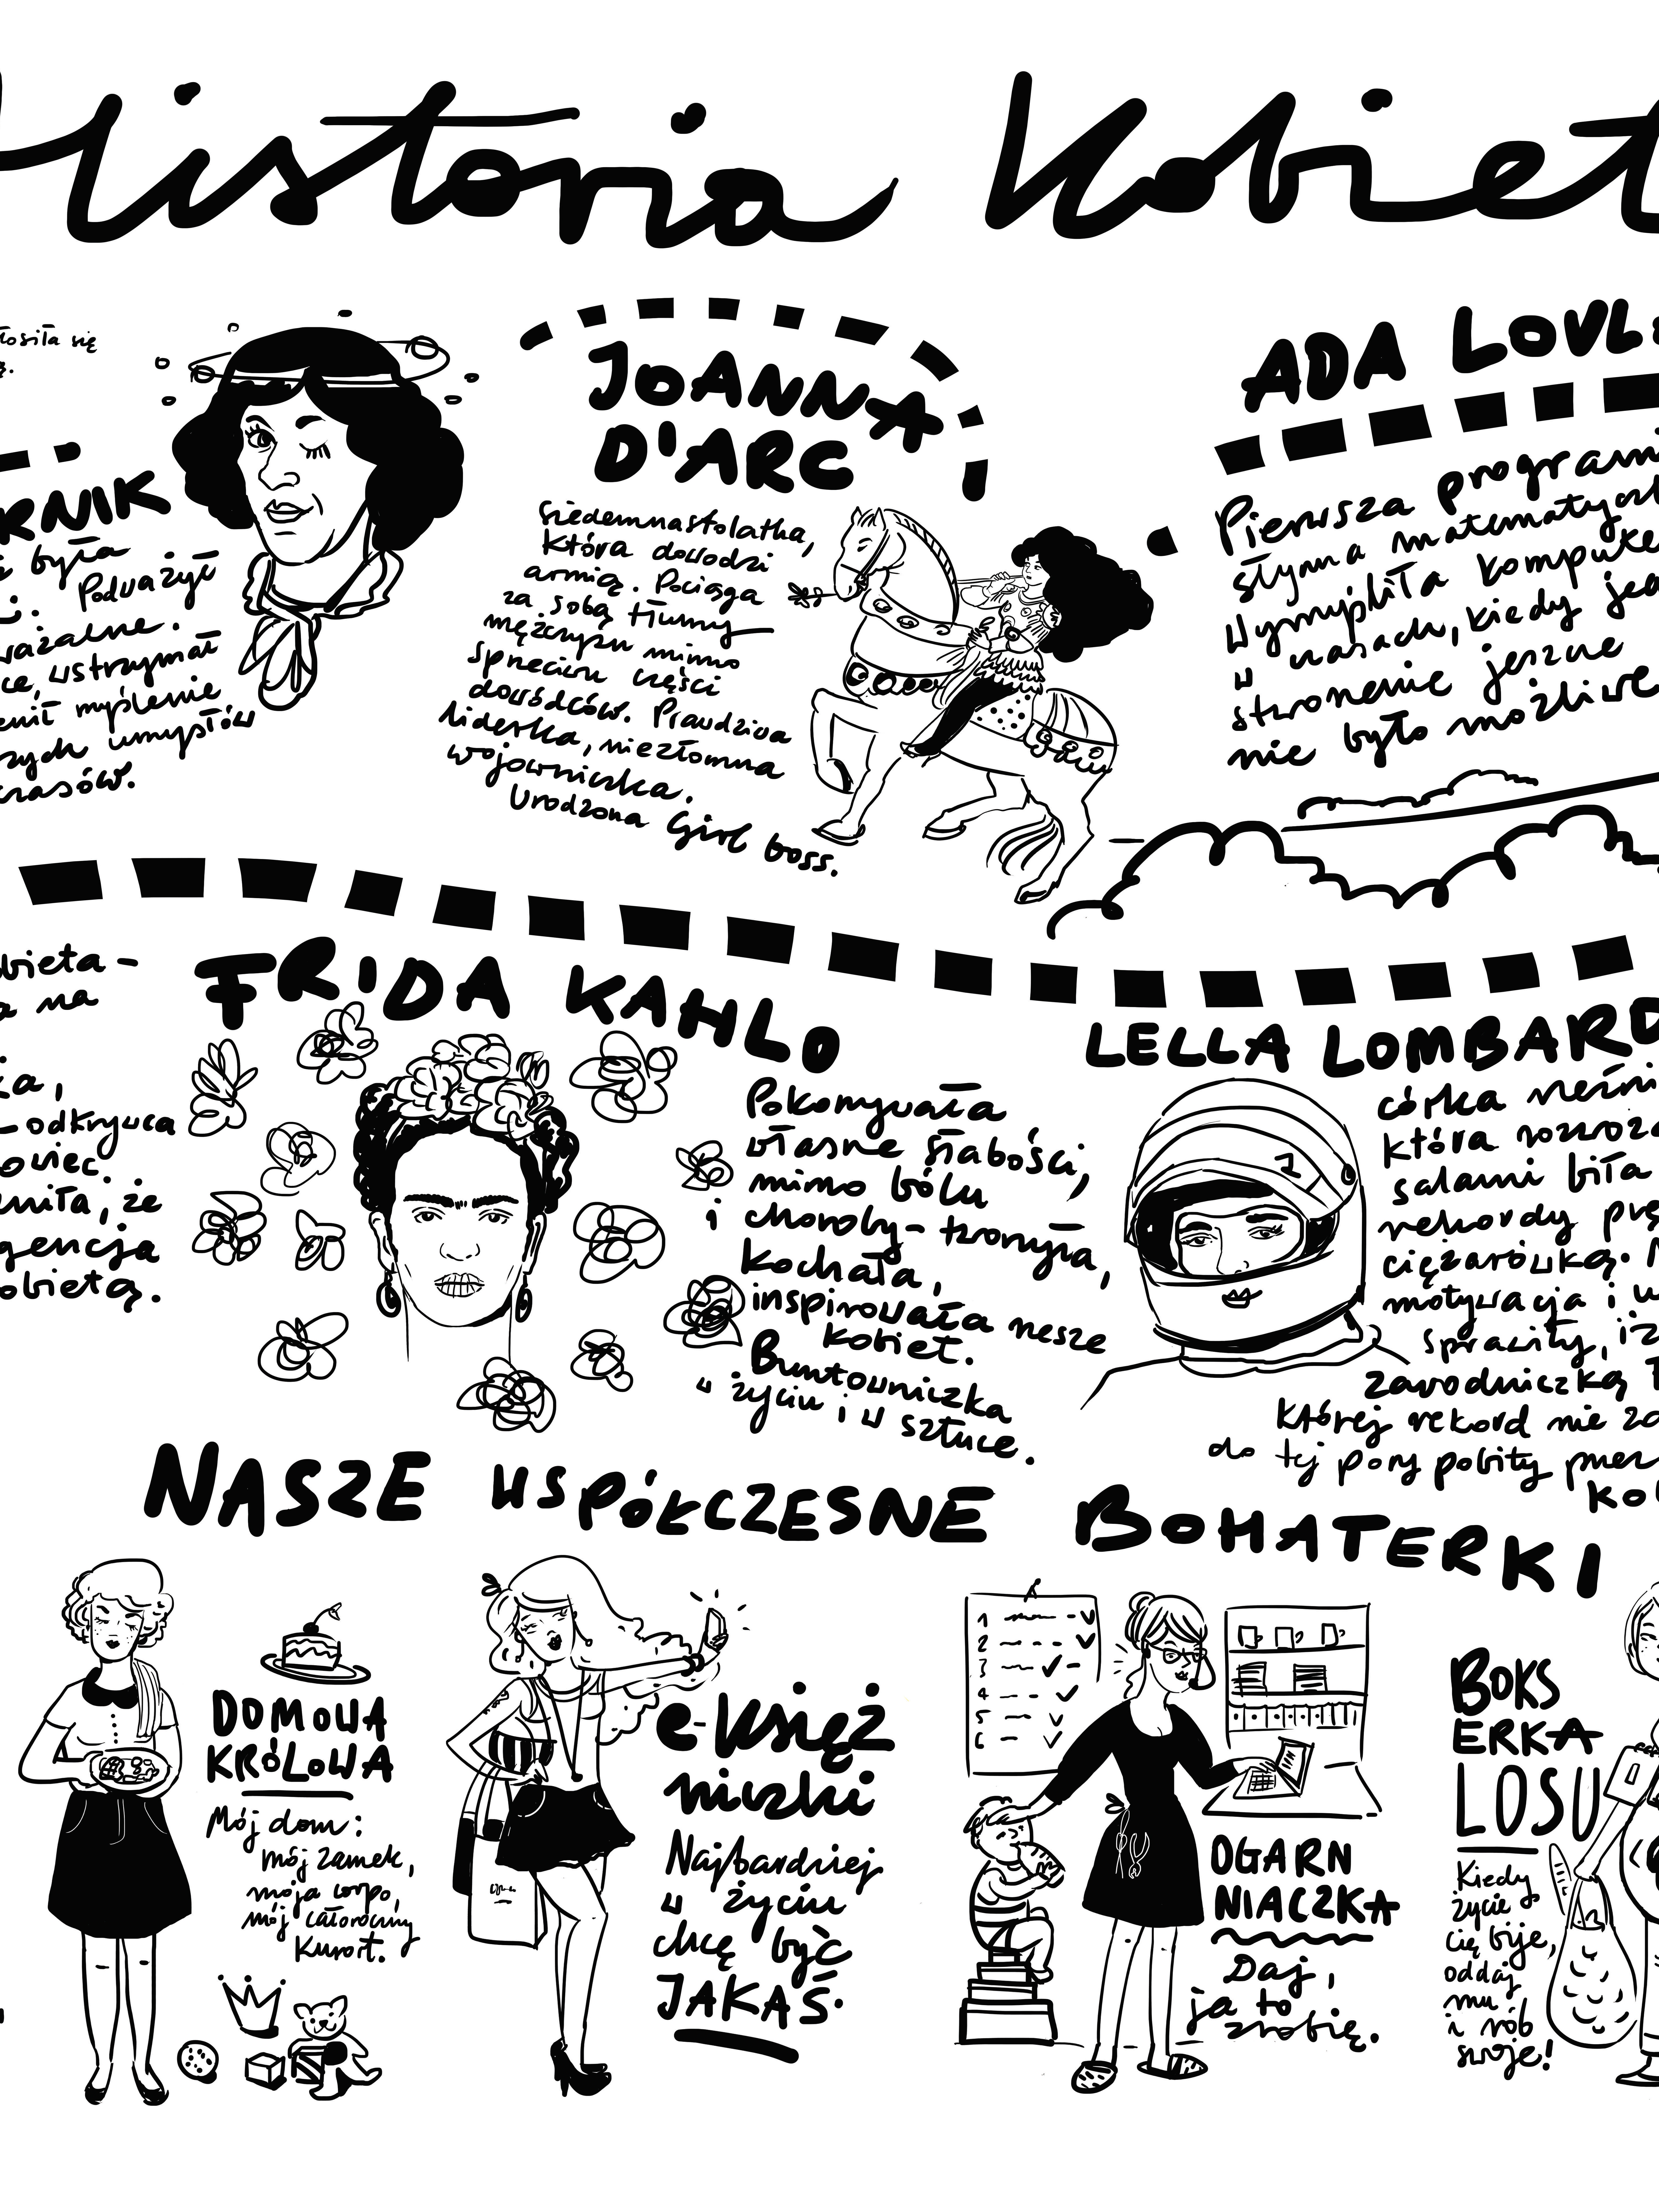 Historia Kobiet
łosiła się
RNIK
była
Podważyć
ważalne.
ce, wstrzymał
enił myślenie
szych umysłów
czasów.
JOANNA
D'ARC
Siedemnastolatka,
która dowodzi
armią. Pociąga
za sobą tłumy
mężczyzn mimo
sprzeciwu części
dowódców. Prawdziwa
liderka, niezłomna
wojowniczka.
Urodzona Girl boss.
ADA LOVL
Pierwsza program
słynna matematycz
Wymyśliła kompute
w czasach, kiedy je
stworzenie jeszcze
nie było możliwe
bieta -
a na
ka,
- odkrywca
owiec.
eniła, że
gencja
obietą.
FRIDA KAHLO
Pokonywała
własne słabości,
mimo bólu
i choroby - tworzyła,
Kochała,
inspirowała rzesze
kobiet.
Buntowniczka
w życiu i w sztuce.
LELLA LOMBARD
córka rzeźni
która rozwoż
salami biła
rekordy prę
ciężarówką.
motywacja i
sprawiły, iż
zawodniczką
której rekord nie zo
do tej pory pobity przez
Kob
NASZE WSPÓŁCZESNE BOHATERKI
DOMOWA
KRÓLOWA
Mój dom:
mój zamek,
moje corpo,
mój całoroczny
Kurort.
e-księż
niczki
Najbardziej
w życiu
chcę być
JAKAŚ.
1
2
3
4
5
6
OGARN
NIACZKA
Daj,
ja to
zrobię.
BOKS
ERKA
LOSU
Kiedy
życie
cię bije,
oddaj
mu
i rób
swoje!